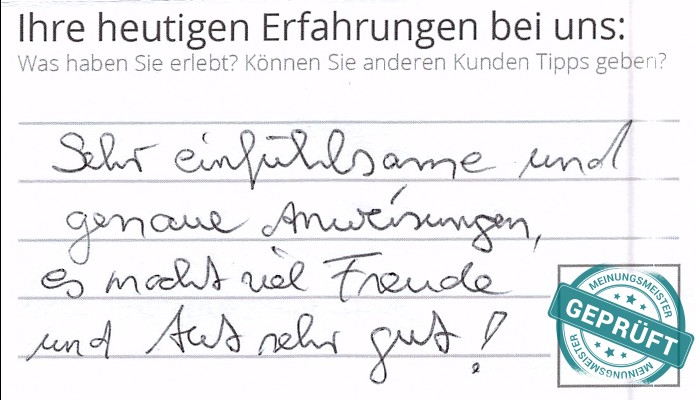 Ihre heutigen Erfahrungen bei uns:
Was haben Sie erlebt? Können Sie anderen Kunden Tipps geben?
Sehr einfühlsame und
genaue Anweisungen,
es macht viel Freude
und tut sehr gut!
MEINUNGSMEISTER
GEPRÜFT
MEINUNGSMEISTER